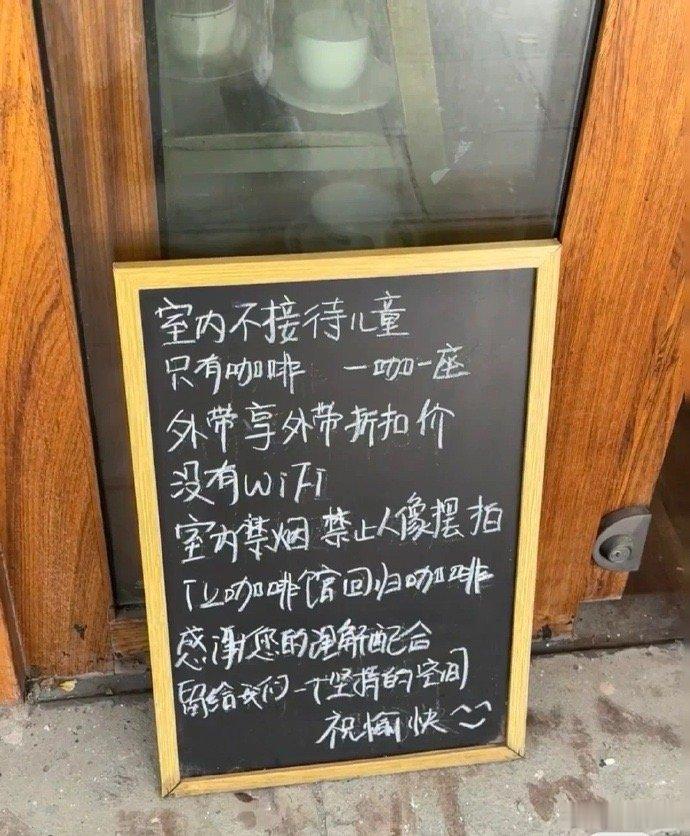 室内不接待儿童
只有咖啡 一咖一座
外带享外带折扣价
没有WiFi
室内禁烟 禁止人像摆拍
让咖啡馆回归咖啡
感谢您的理解配合
留给我们一个坚持的空间
祝愉快